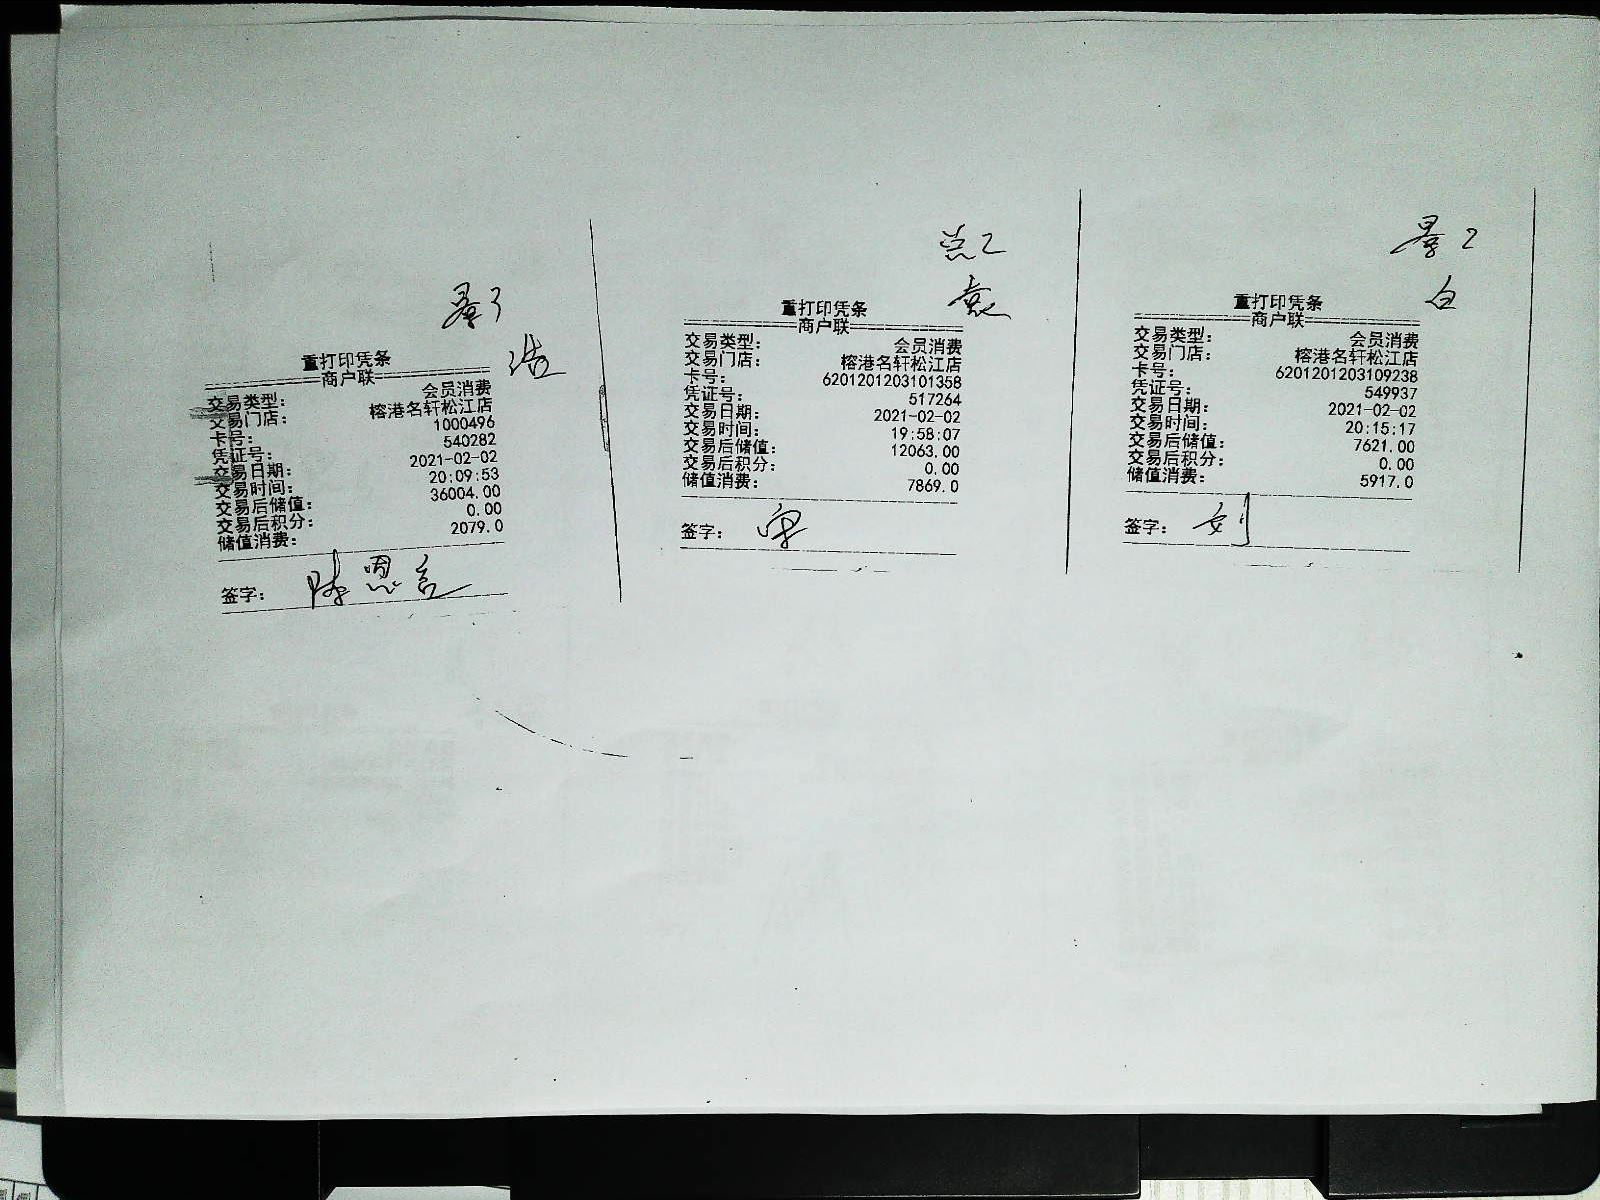 重打印凭条
商户联
交易类型： 会员消费
交易门店： 榕港名轩松江店
卡号： 1000496
凭证号： 540282
交易日期： 2021-02-02
交易时间： 20:09:53
交易后储值： 36004.00
交易后积分： 0.00
储值消费： 2079.0
签字：
重打印凭条
商户联
交易类型： 会员消费
交易门店： 榕港名轩松江店
卡号： 6201201203101358
凭证号： 517264
交易日期： 2021-02-02
交易时间： 19:58:07
交易后储值： 12063.00
交易后积分： 0.00
储值消费： 7869.0
签字：
白
重打印凭条
商户联
交易类型： 会员消费
交易门店： 榕港名轩松江店
卡号： 6201201203109238
凭证号： 549937
交易日期： 2021-02-02
交易时间： 20:15:17
交易后储值： 7621.00
交易后积分： 0.00
储值消费： 5917.0
签字： 刘